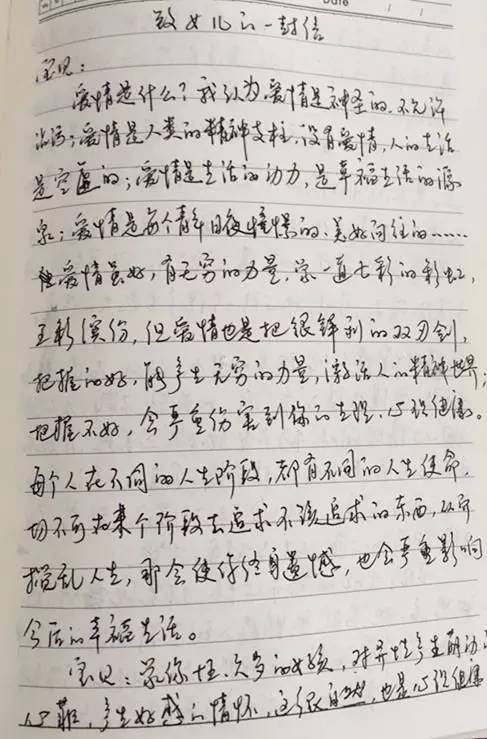 Date
致女儿的一封信
宝贝：
爱情是什么？我认为爱情是神圣的，不允许
沾污；爱情是人类的精神支柱，没有爱情，人的生活
是空虚的；爱情是生活的动力，是幸福生活的源
泉；爱情是每个青年日夜憧憬的、美好向往的……
爱情虽好，有无穷的力量，像一道七彩的彩虹，
五彩缤纷，但爱情也是把很锋利的双刃剑，
把握的好，能产生无穷的力量，激活人的精神世界；
把握不好，会严重伤害到你的生理、心理健康。
每个人在不同的人生阶段，都有不同的人生使命，
切不可在某个阶段去追求不该追求的东西，从而
搅乱人生，那会使你终身遗憾，也会严重影响
今后的幸福生活。
宝贝：像你这么多的女孩，对异性产生萌动
心菲，产生好感的情怀，这很自然，也是心理健康